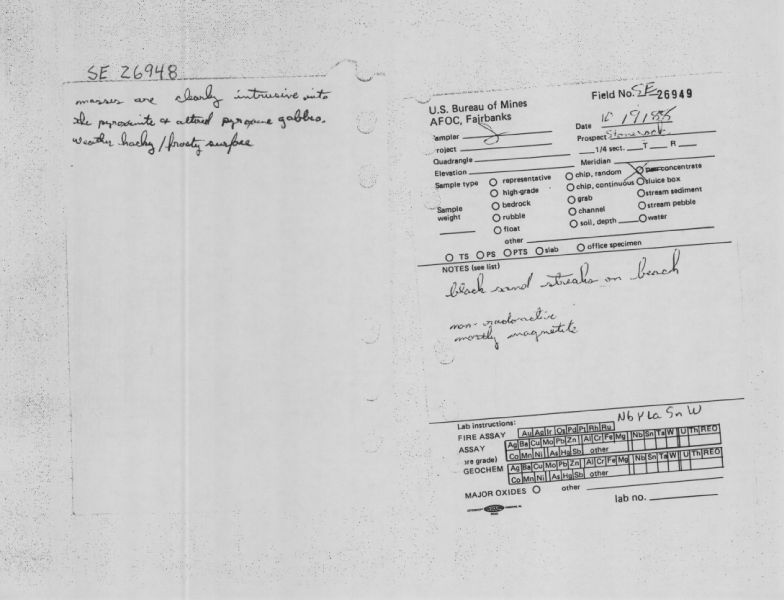 SE 26948
masses are clearly intrusive into
the pyroxenite & altered pyroxene gabbro.
weather hacky / frosty surface
U.S. Bureau of Mines
AFOC, Fairbanks
Field No. SE 26949
ampler
Date
roject
Prospect
Quadrangle
1/4 sect. T R
Elevation
Meridian
Sample type
representative
high-grade
bedrock
rubble
float
other
chip, random
chip, continuous
grab
channel
soil, depth
pan concentrate
sluice box
stream sediment
stream pebble
water
Sample
weight
TS PS PTS slab office specimen
NOTES (see list)
black sand streaks on beach
non-radioactive
mostly magnetite
Lab instructions:
Nb Y La Sn W
FIRE ASSAY Au Ag Ir Os Pd Pt Rh Ru
ASSAY Ag Ba Cu Mo Pb Zn Al Cr Fe Mg Nb Sn Ta W U Th REO
ore grade) Co Mn Ni As Hg Sb other
GEOCHEM Ag Ba Cu Mo Pb Zn Al Cr Fe Mg Nb Sn Ta W U Th REO
Co Mn Ni As Hg Sb other
MAJOR OXIDES other
lab no.